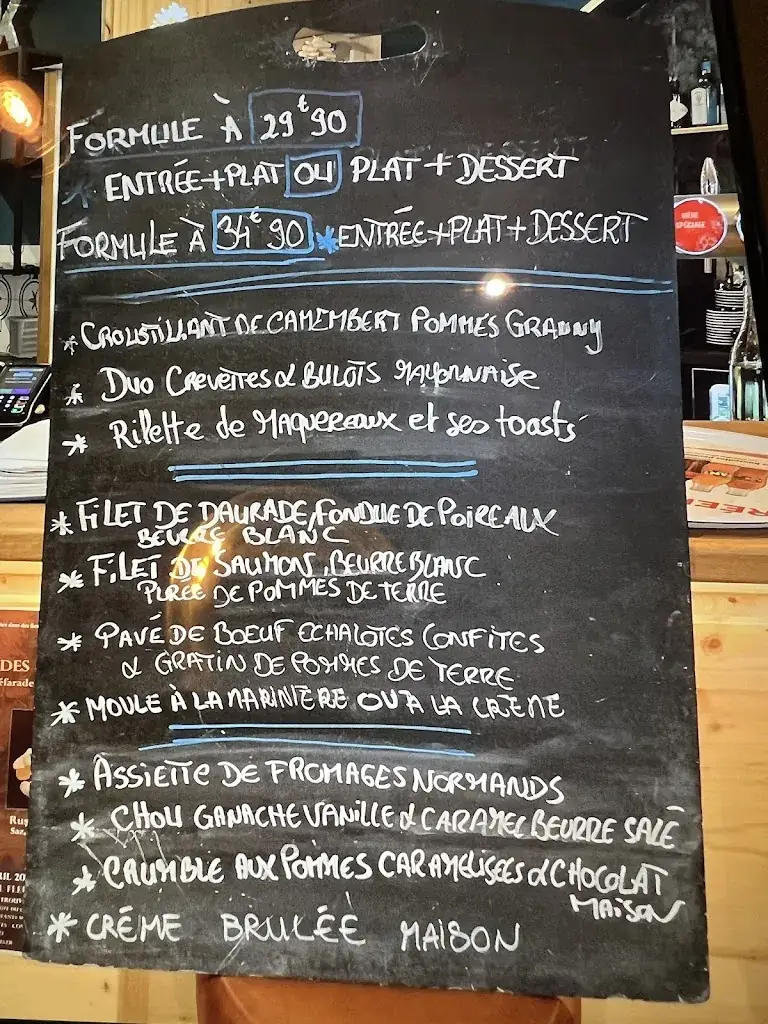 FORMULE À 29€90
* ENTRÉE+PLAT OU PLAT + DESSERT
FORMULE À 34€90 * ENTRÉE+PLAT+DESSERT
* CROUSTILLANT DE CAMEMBERT POMMES GRANNY
* DUO CREVETTES & BULOTS MAYONNAISE
* Rillette de Maquereaux et ses toasts
* FILET DE DAURADE, FONDUE DE POIREAUX
BEURRE BLANC
* FILET DE SAUMON, BEURRE BLANC
PUREE DE POMMES DE TERRE
* PAVÉ DE BOEUF ECHALOTES CONFITES
& GRATIN DE POMMES DE TERRE
* MOULE À LA MARINIERE OU À LA CRÈME
* ASSIETTE DE FROMAGES NORMANDS
* CHOU GANACHE VANILLE & CARAMEL BEURRE SALÉ
* CRUMBLE AUX POMMES CARAMELISEES & CHOCOLAT
MAISON
* CRÉME BRULÉE MAISON
BIÈRE
SPÉCIALE
DES